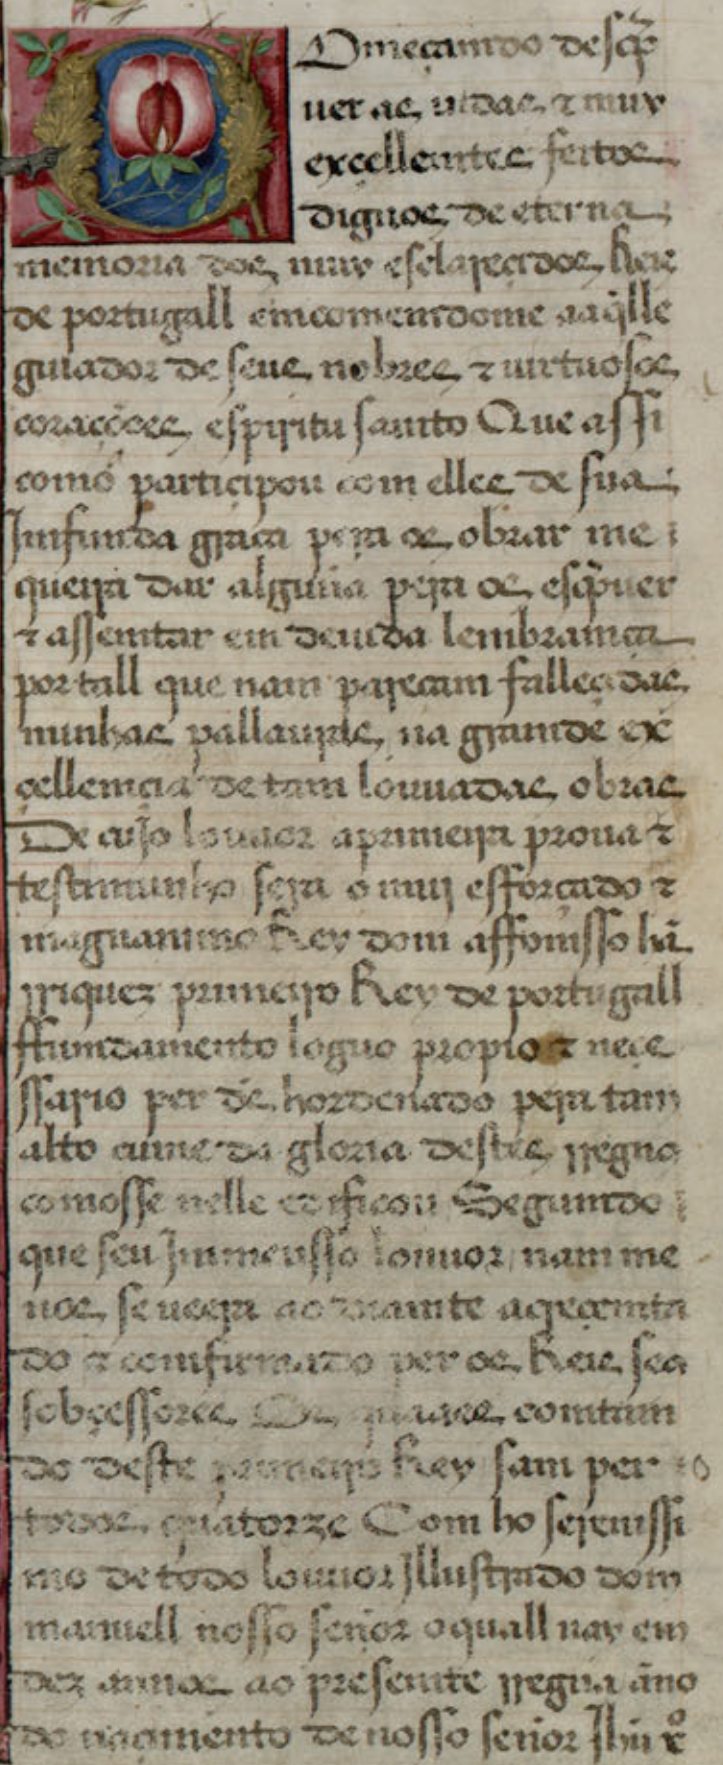 Começamdo desc̃p
uer as uidas ⁊ muy
excellemtes feitos
dignos de eterna
memoria dos muy esclareçidos Reis
de portugall emcomemdome aaq̃lle
guiador de seus nobres ⁊ uirtuosos
corações espiritu samto Que assi
como participou com elles de sua
Imfimda graça pera os obrar me
queira dar alguũa pera os esc̃puer
⁊ assemtar em deuida lembramça
por tall que nam pareçam falleçidas
minhas pallauras na gramde ex
çellemcia de tam louuadas obras
De cujo louuor aprimeira proua ⁊
testimunho sera o mui efforçado ⁊
magnanimo Rey dom affomsso hã
rriquez primeiro Rey de portugall
ffumdamento loguo propio ⁊ neçe
ssario per ds̃ hordenado pera tam
alto cume da gloria destes rregnos
comosse nelle edificou Segumdo
que seu Immensso louuor nam me
nos se ueera ao diamte acreçemta
do ⁊ comfirmado per os Reis seus
sobçessores Os quaaes comtam
do deste primeiro Rey sam per
todos quatorze Com ho serenissi
mo de todo louuor Illustrado dom
manuell nosso señor oquall uay em
dez annos ao presemte rregna ãno
do naçimento de nosso señor Jhũ xº